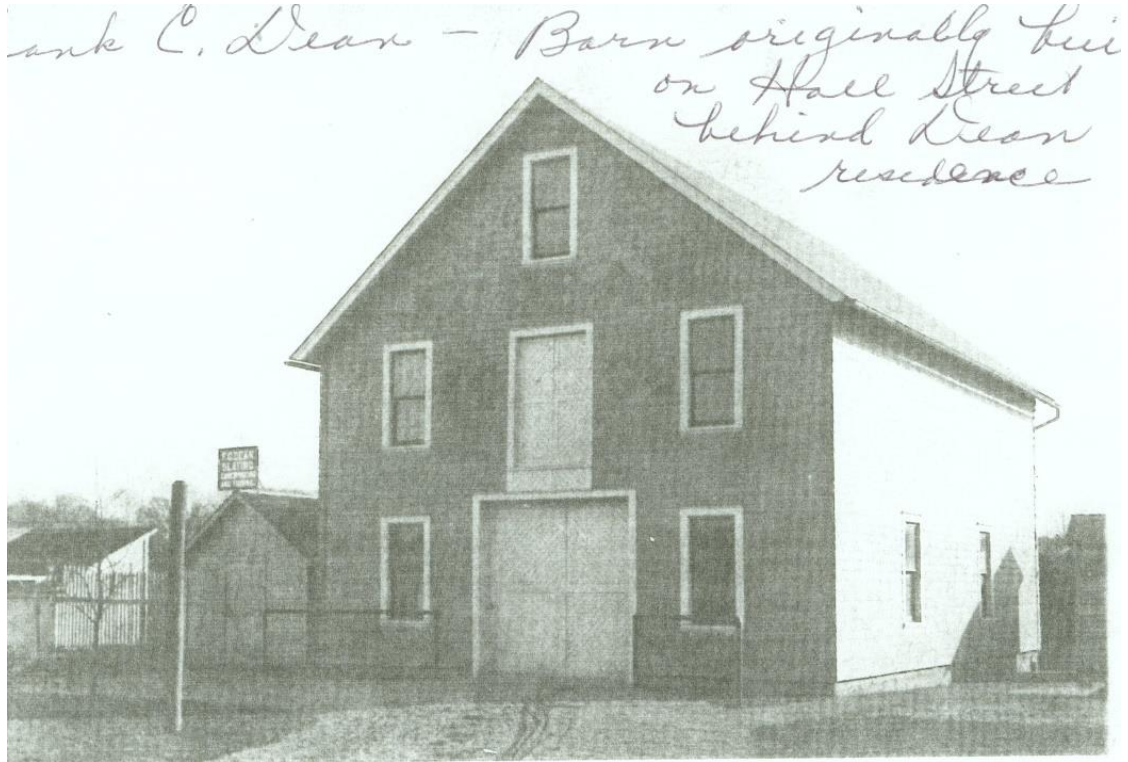 ank C. Dean - Barn originally bui
on Hall Street
behind Dean
residence
F.C.DEAN
SLATING